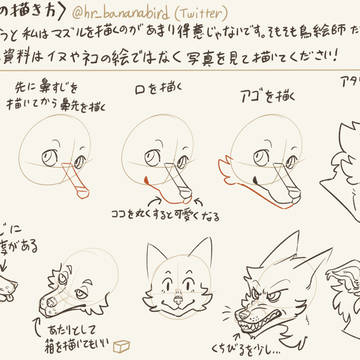 の描き方〉 @hr_bananabird (Twitter)
うと私はマズルを描くのがあまり得意じゃないです。そもそも鳥絵師だ
資料はイヌやネコの絵ではなく写真を見て描いてください!
先に鼻すじを
描いてから鼻先を描く
口を描く
アゴを描く
アタ
ココを丸くすると可愛くなる
じに
厚がある
あたりとして
箱を描いてもいい
くちびるを少し…